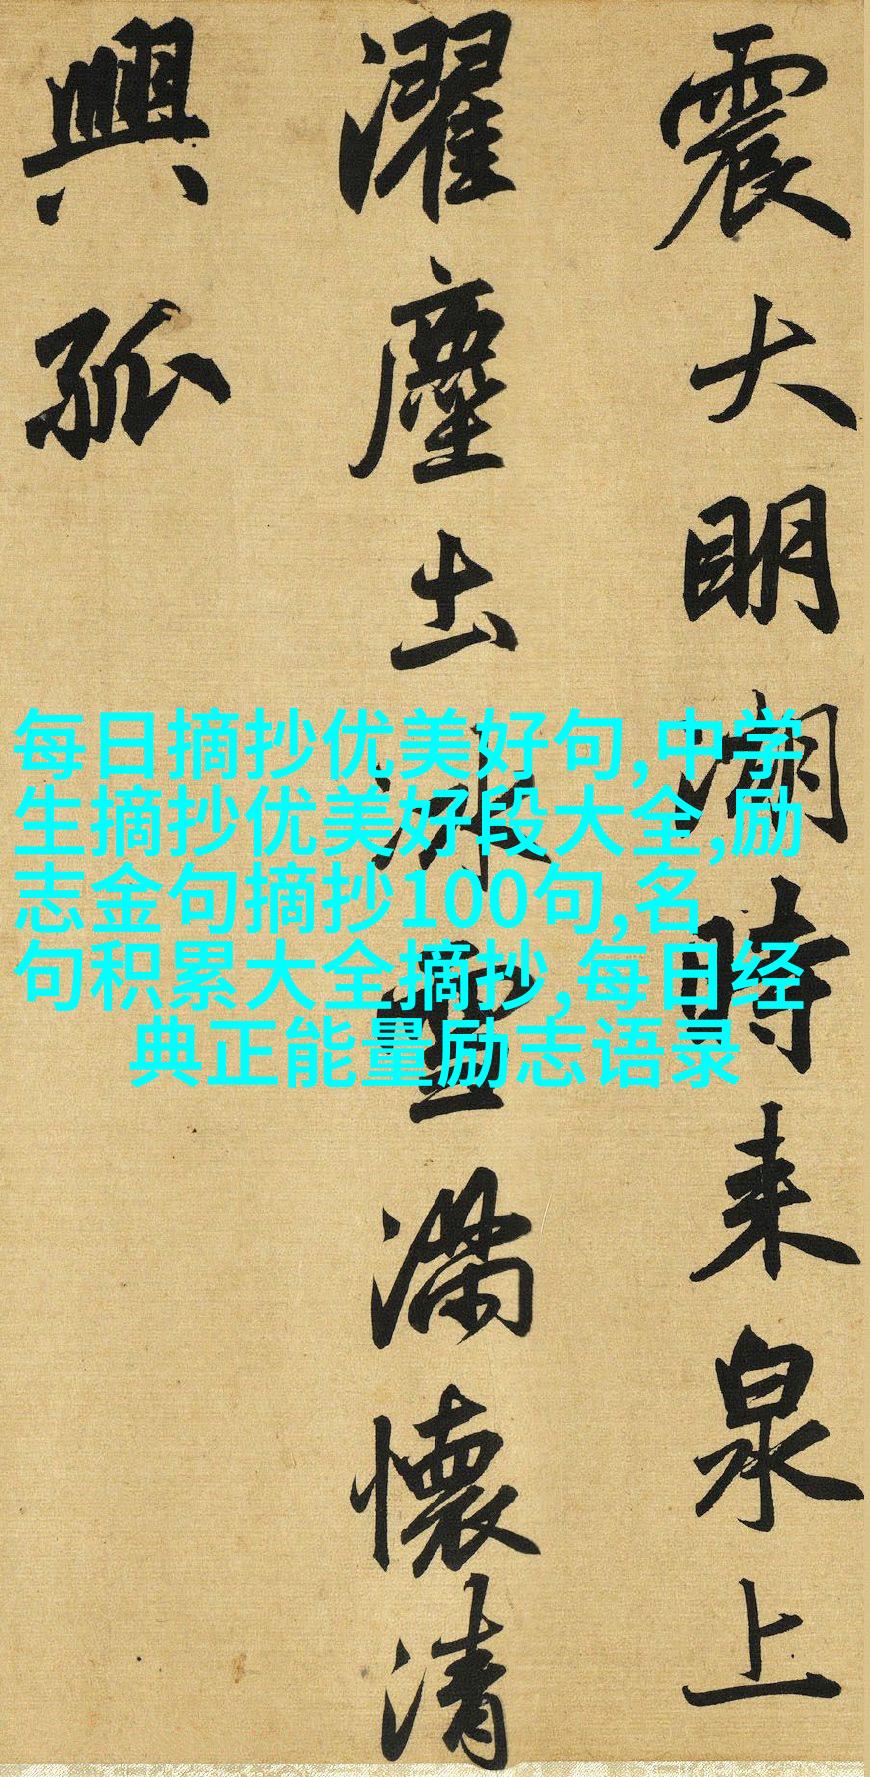 震大明湖時来泉上
濯塵出冰雪滿懷清
興孤
每日摘抄优美好句,中学
生摘抄优美好段大全,励
志金句摘抄100句,名
句积累大全摘抄,每日经
典正能量励志语录